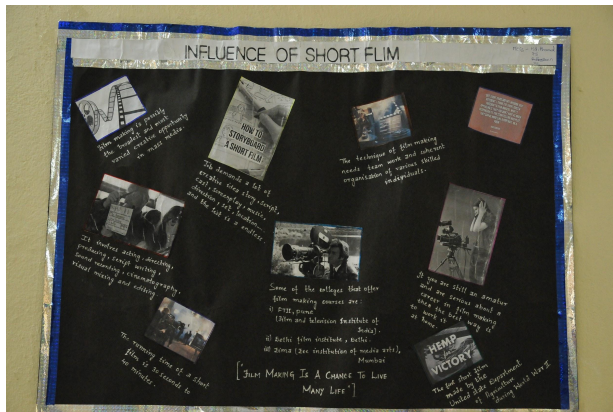 INFLUENCE OF SHORT FLIM
Film making is possibly
the broadest and most
varied creative opportunity
in mass media.
HOW TO
STORYBOARD
A SHORT FILM
Job demands a lot of
creative idea story, script,
cast, screenplay, music,
direction, set, location....
and the list is a endless.
The technique of film making
needs team work and coherent
organisation of various skilled
individuals.
It involves acting, directing,
producing, script writing,
sound recording, cinematography,
visual mixing and editing
Some of the colleges that offer
film making courses are:
i) FTII, pune
(Film and television Institute of
India).
ii) Delhi film institute, Delhi.
iii) Zima (Zee institution of media arts),
Mumbai
If you are still an amatur
and are serious about a
career in film making
then the best way is
to work it
at home.
The running time of a short
film is 30 seconds to
40 minutes
['FILM MAKING IS A CHANCE TO LIVE
MANY LIFE']
HEMP
for
VICTORY
The first short film
made by the
United state Department
of Agriculture
during World War II